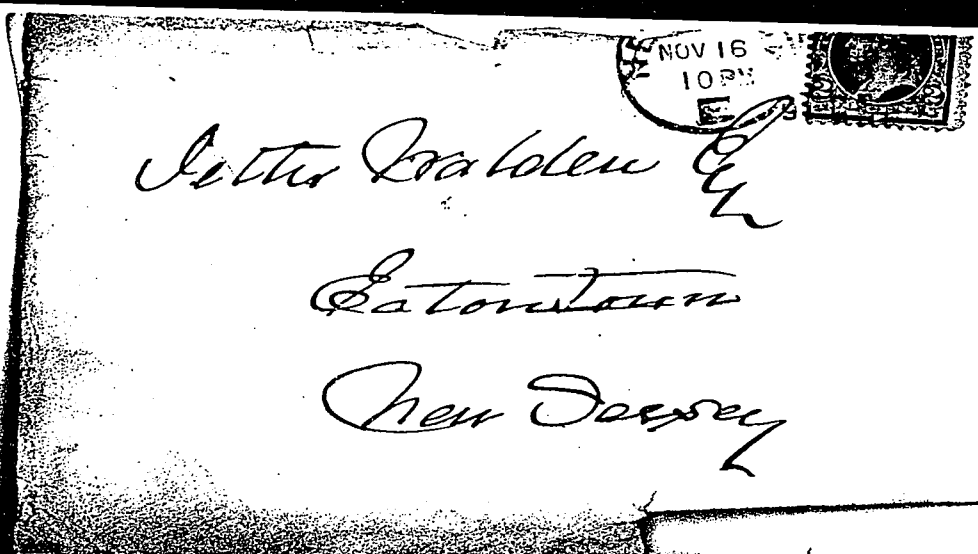 NOV 16
10 PM
Jetter Walden Esq
Eatontown
New Jersey